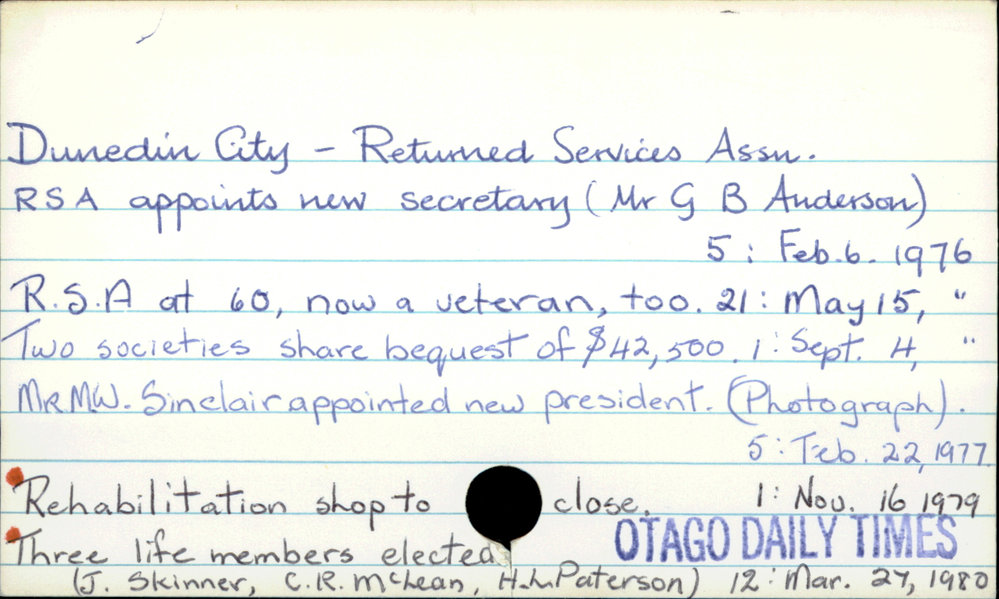 Dunedin City - Returned Services Assn.
RSA appoints new secretary (Mr G B Anderson)
5 : Feb. 6. 1976
R.S.A at 60, now a veteran, too. 21 : May 15, "
Two societies share bequest of $42,500. 1 : Sept. 4, "
Mr M.W. Sinclair appointed new president. (Photograph).
5 : Feb. 22, 1977.
Rehabilitation shop to close. 1 : Nov. 16 1979
OTAGO DAILY TIMES
Three life members elected
(J. Skinner, C.R. McLean, H.L. Paterson) 12 : Mar. 27, 1980